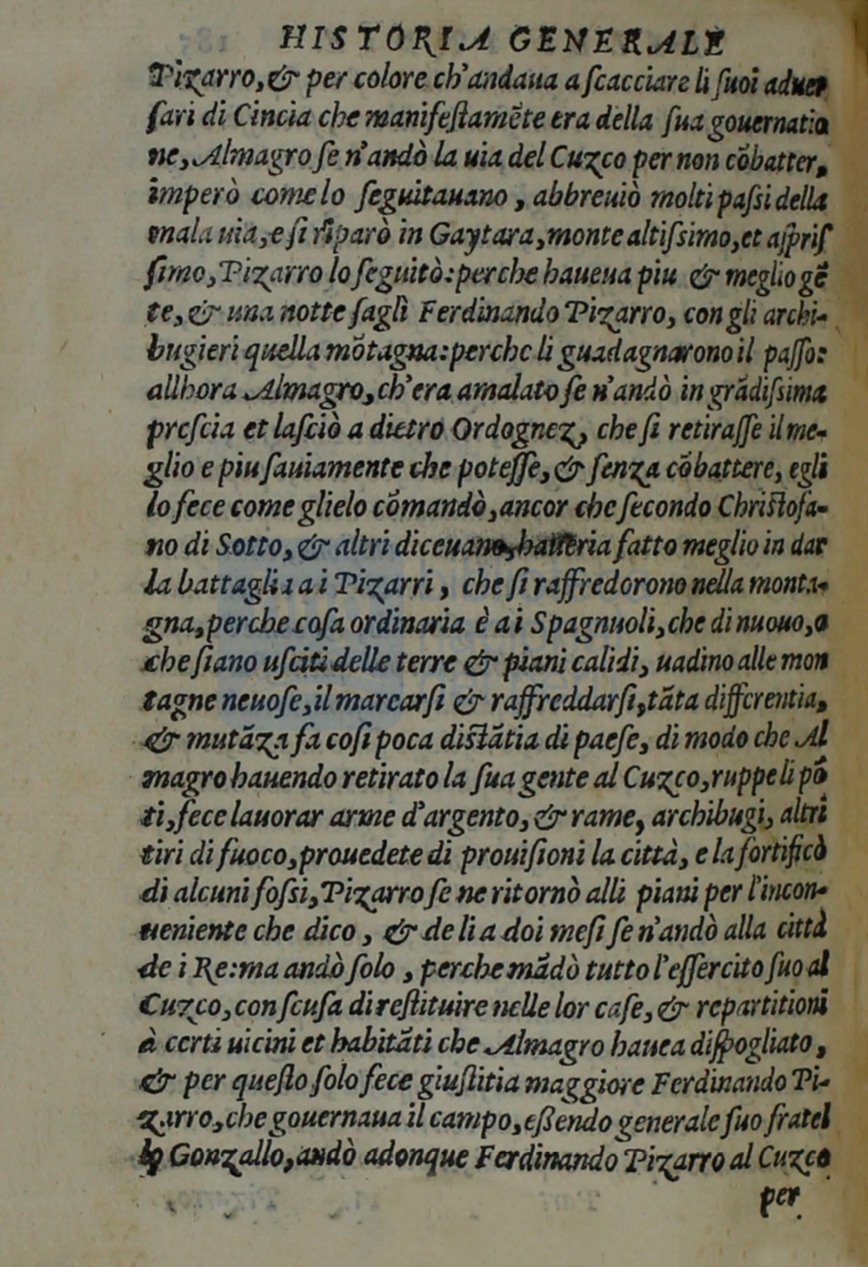 HISTORIA GENERALE
Pizarro, & per colore ch'andaua a ſcacciare li ſuoi aduer
ſari di Cincia che manifeſtamẽte era della ſua gouernatio
ne, Almagro ſe n'andò la uia del Cuzco per non cõbatter,
imperò come lo ſeguitauano, abbreuiò molti paſsi della
mala uia, e ſi riparò in Gaytara, monte altiſsimo, et aſpriſ
ſimo, Pizarro lo ſeguitò: perche haueua piu & meglio gẽ
te, & una notte ſaglì Ferdinando Pizarro, con gli archi-
bugieri quella mõtagna: perche li guadagnarono il paſſo:
allhora Almagro, ch'era amalato ſe n'andò in grãdiſsima
preſcia et laſciò a dietro Ordognez, che ſi retiraſſe il me-
glio e piu ſauiamente che poteſſe, & ſenza cõbattere, egli
lo fece come glielo cõmandò, ancor che ſecondo Chriſtofa-
no di Sotto, & altri diceuano, fatto meglio in dar
la battaglia a i Pizarri, che ſi raffredorono nella monta-
gna, perche coſa ordinaria è a i Spagnuoli, che di nuouo, o
che ſiano uſciti delle terre & piani calidi, uadino alle mon
tagne neuoſe, il marearſi & raffreddarſi, tãta differentia,
& mutãza fa coſi poca diſtãtia di paeſe, di modo che Al
magro hauendo retirato la ſua gente al Cuzco, ruppe li põ
ti, fece lauorar arme d'argento, & rame, archibugi, altri
tiri di fuoco, prouedete di prouiſioni la città, e la fortificò
di alcuni foſsi, Pizarro ſe ne ritornò alli piani per l'incon-
ueniente che dico, & de li a doi meſi ſe n'andò alla città
de i Re: ma andò ſolo, perche mãdò tutto l'eſſercito ſuo al
Cuzco, con ſcuſa di reſtituire nelle lor caſe, & repartitioni
à certi uicini et habitãti che Almagro hauea diſpogliato,
& per queſto ſolo fece giuſtitia maggiore Ferdinando Pi-
zarro, che gouernaua il campo, eſſendo generale ſuo fratel
lo Gonzallo, andò adonque Ferdinando Pizarro al Cuzco
per